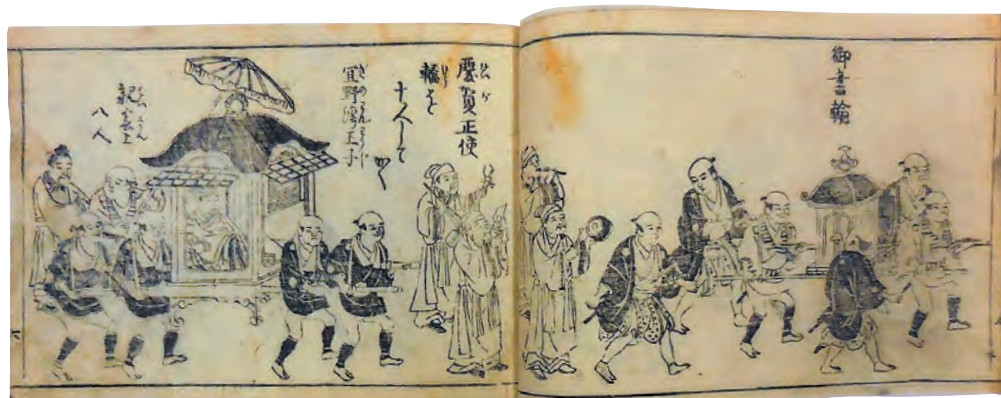 御書翰
慶賀正使
轎を
十人して
かく
宜野湾王子
親雲上
八人